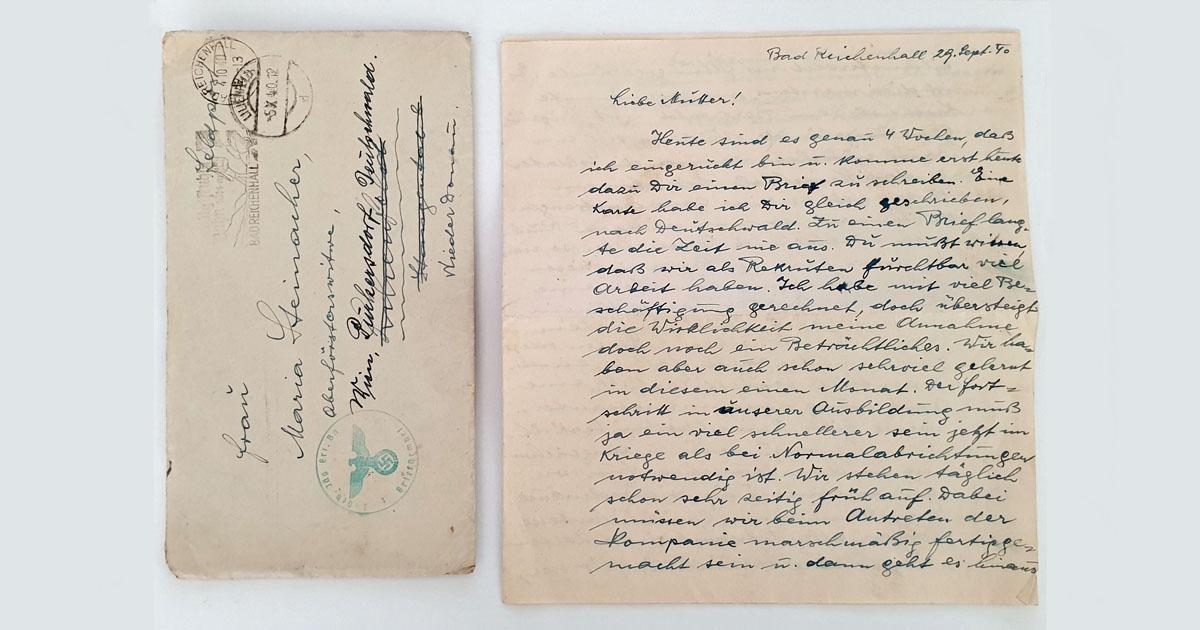 Feldpost
BAD REICHENHALL
-5.X.40.12
Frau
Maria Steinacher,
Oberförsterswitwe,
Wien, Purkersdorf, Deutschwald.
Niederdonau.
Bad Reichenhall 29. Sept. 40
Liebe Mutter!
Heute sind es genau 4 Wochen, daß
ich eingerückt bin u. komme erst heute
dazu Dir einen Brief zu schreiben. Eine
Karte habe ich Dir gleich geschrieben,
nach Deutschwald. Zu einen Brief lang-
te die Zeit nie aus. Du mußt wissen
daß wir als Rekruten furchtbar viel
Arbeit haben. Ich habe mit viel Be-
schäftigung gerechnet, doch übersteigt
die Wirklichkeit meine Annahme
doch noch ein Beträchtliches. Wir ha-
ben aber auch schon sehr viel gelernt
in diesem einen Monat. Der Fort-
schritt in unserer Ausbildung muß
ja ein viel schnellerer sein jetzt im
Kriege als bei Normalabrichtungen
notwendig ist. Wir stehen täglich
schon sehr zeitig früh auf. Dabei
müssen wir beim Antreten der
Kompanie marschmäßig fertigge-
macht sein u. dann geht es hinaus